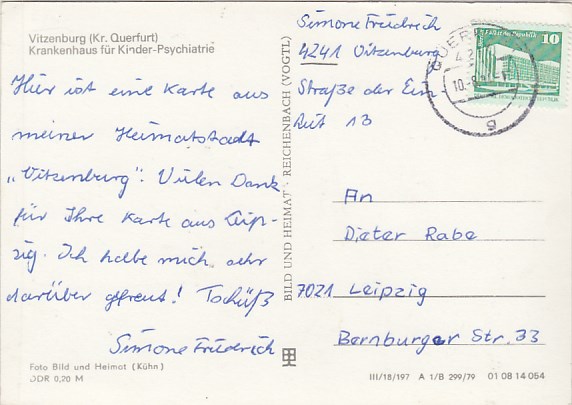 Vitzenburg (Kr. Querfurt)
Krankenhaus für Kinder-Psychiatrie
Hier ist eine Karte aus
meiner Heimatstadt
„Vitzenburg". Vielen Dank
für Ihre Karte aus Leip-
zig. Ich habe mich sehr
darüber gefreut! Tschüß
Simone Friedrich
Foto Bild und Heimat (Kühn)
DDR 0,20 M
BILD UND HEIMAT · REICHENBACH (VOGTL)
Simone Friedrich
4241 Vitzenburg
Straße der Ein-
heit 13
QUERF
10
g
An
Dieter Rabe
7021 Leipzig
Bernburger Str. 33
III/18/197 A 1/B 299/79 01 08 14 054